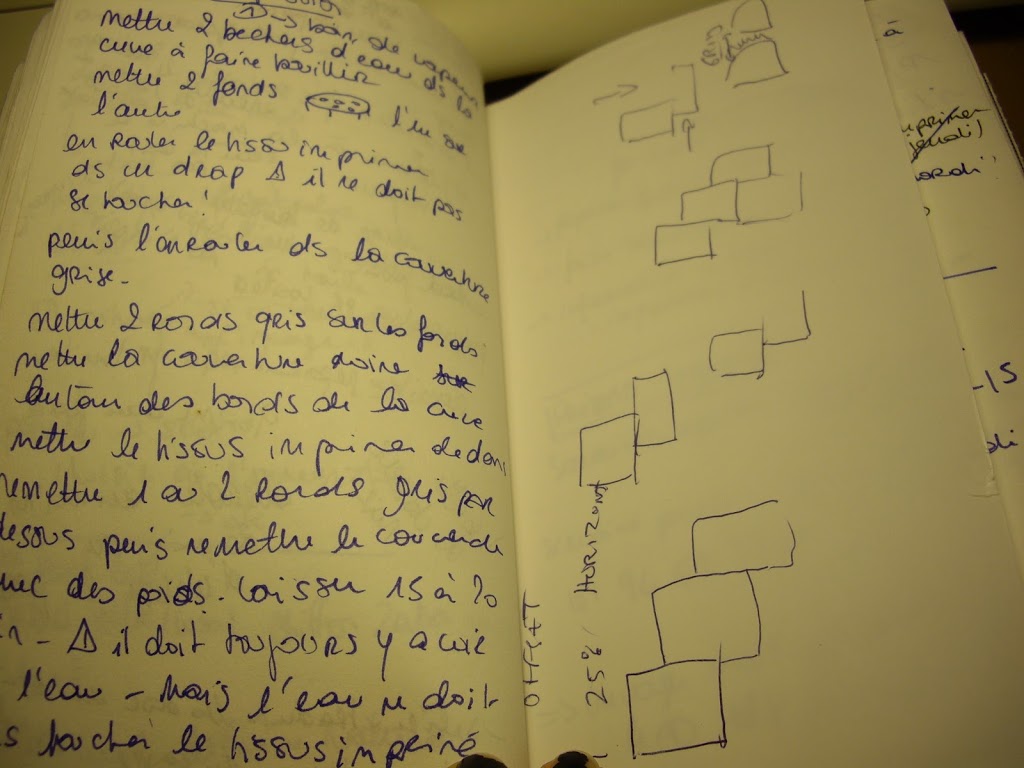 ① → bain de vapeur
mettre 2 bechers d'eau ds la
cuve à faire bouillir
mettre 2 fonds l'un sur
l'autre
en rouler le tissu imprimer
ds un drap ⚠ il ne doit pas
se toucher!
puis l'enrouler ds la couverture
grise.
mettre 2 ronds gris sur les fonds
mettre la couverture
autour des bords de la cuve
mettre le tissus imprimer dedans
remettre 1 ou 2 ronds gris par
dessus puis remettre le couvercle
avec des poids. laisser 15 à 20
- ⚠ il doit toujours y avoir
l'eau - mais l'eau ne doit
s toucher le tissus imprimé
OFFSET
25% HORIZONT
à
imprimer
jeudi)
-15
di